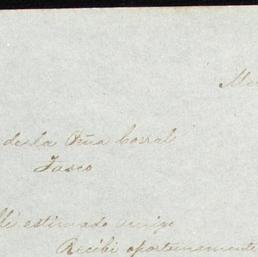 de la Peña Corral
Tasco
Mi estimado amigo
Recibí oportunamente